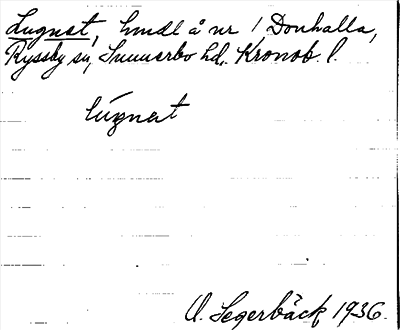 Lugnet, hmdl å nr 1 Donhalla,
Ryssby sn, Sunnerbo hd, Kronob. l.
lúgnet
U. Segerbäck 1936.